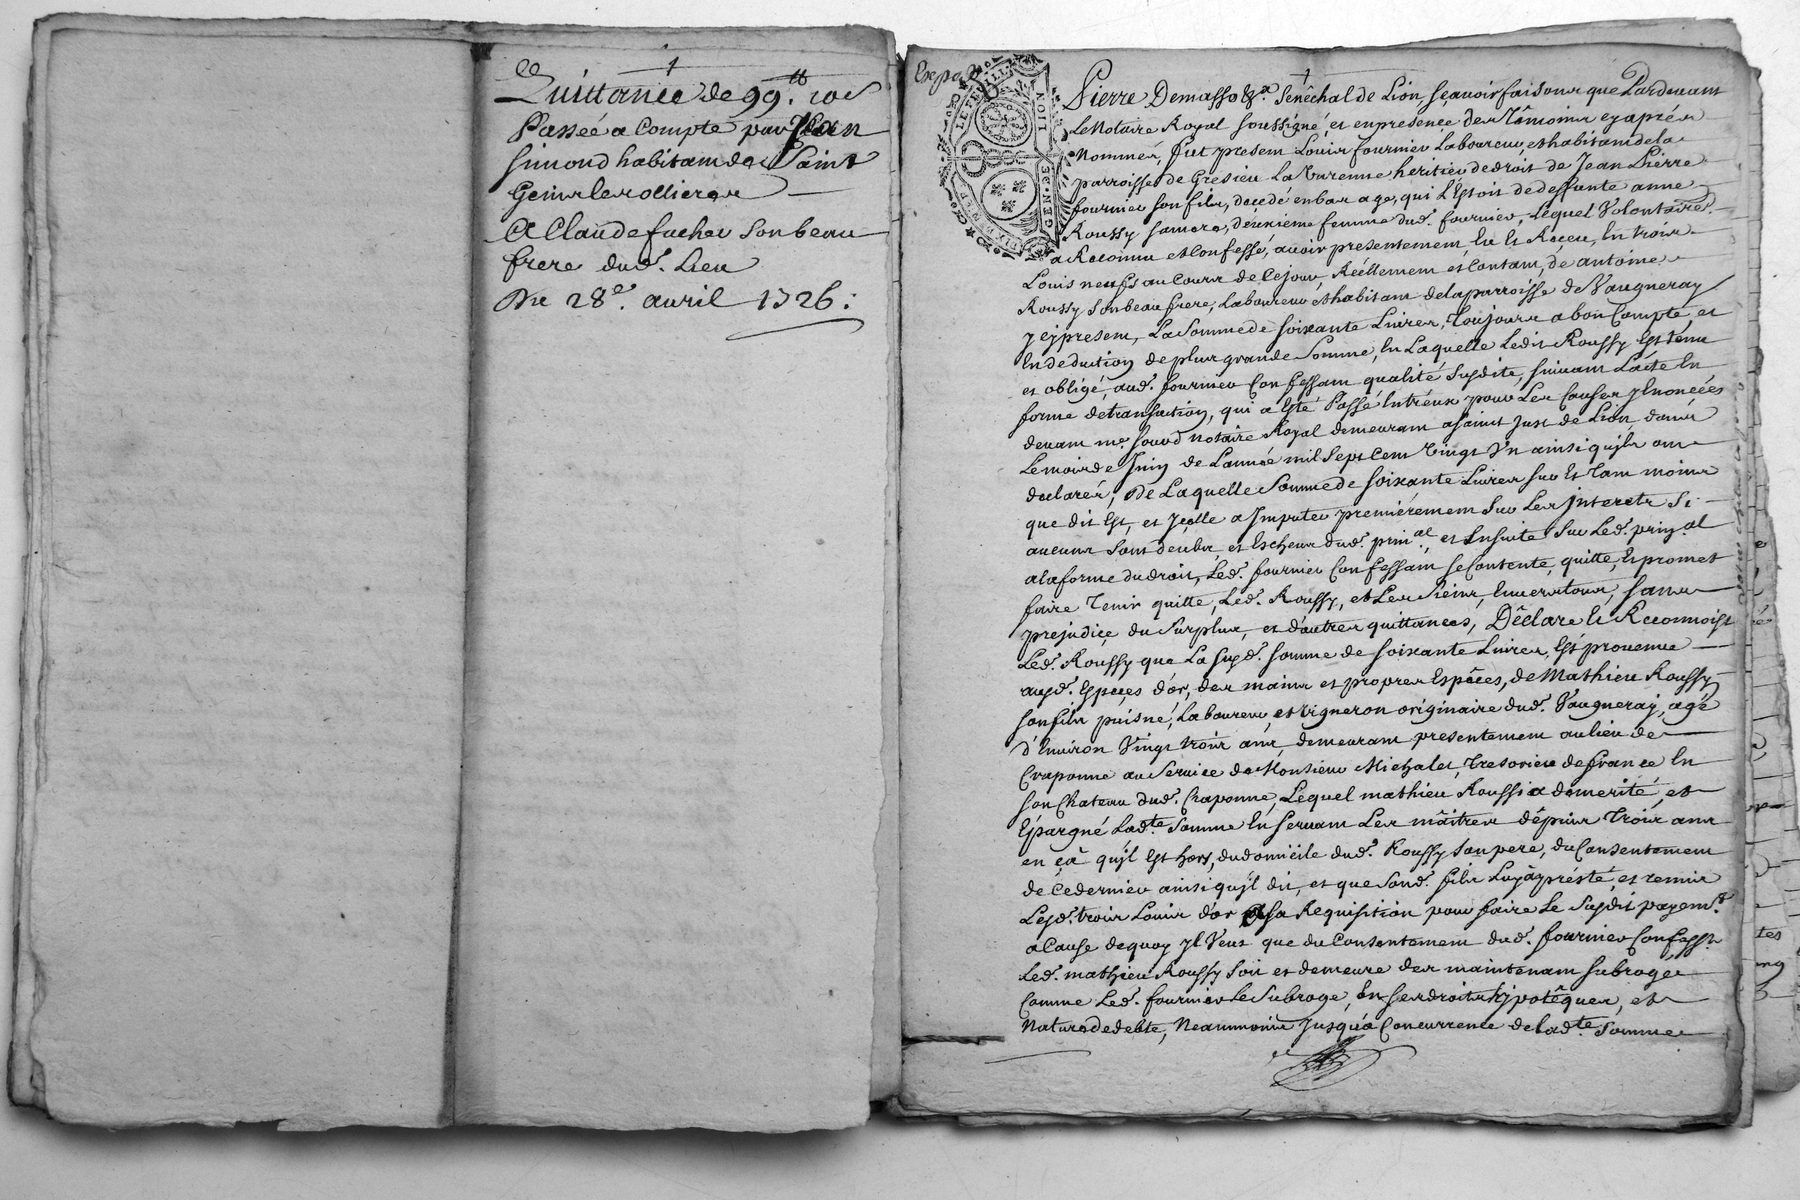 Quittance de 99.tt 10s
Passée a Compte par Jean
Simond habitant de Saint
Genis les ollieres
A Claude fuchez son beau
frere dud. Lieu
Du 28e. avril 1726:
Expa
LE FEUILLE
GEN. DE LION
Pierre Demasso &a Senêchal de Lion, sçavoir faisons que Pardevant
Le Notaire Royal soussigné, et en presence des Têmoins cy aprés
Nommés, fut present Louis fournier Laboureur, et habitant de la
parroisse de Gresieu La Varenne heritier de droit de Jean Pierre
fournier son fils, decedé en bas age, qui L'Estoit de deffunte anne
Roussy sa mere, deuxieme femme dud. fournier, Lequel Volontaire.
a Reconnu et Confessé, avoir presentement Eu Et Receu, En trois
Louis neufs au Cours de Ce jour, Réellement et Contant, de antoine
Roussy son beau frere, Laboureur et habitant de la parroisse de Vaugneray
y cy present, La Somme de soixante Livres, Toujours a bon Compte, et
En deduction de plus grande Somme, En Laquelle Ledit Roussy Est tenu
et obligé, aud. fournier Confessant qualité Susdite, suivant L'acte En
forme de transaction, qui a Esté Passé Entreux pour Les Causes y Enoncées
devant me. Jourd notaire Royal demeurant a saint Just de Lion dans
Le mois de Juin de L'année mil Sept Cent Vingt Un ainsi qu'ils ont
declarés, De Laquelle Somme de soixante Livres sur Et Tant moins
que dit Est, et Icelle a Imputer premiérement Sur Les Interets Si
aucuns sont deubs, et Escheus dud. prin.al, et Ensuite Sur Led. prin.al
a la forme du droit, Led. fournier Confessant se Contente, quitte, Et promet
faire Tenir quitte, Led. Roussy, et Les Siens, Envers tous, sans
prejudice du Surplus, et d'autres quittances, Dêclare Et Reconnoist
Led. Roussy que La susd. somme de soixante Livres, Est provenue
ausd. Especes d'or, des mains et propres Espêces, de Mathieu Roussy
son fils puisné, Laboureur, et vigneron originaire dud. Vaugneray, agé
d'Environ Vingt trois ans, demeurant presentement au lieu de
Craponne au Service de Monsieur Michalet, Tresorier de france En
son Chateau dud. Craponne, Lequel mathieu Roussi a démerité, et
Epargné Lad.te Somme En servant Les mâitres dêpuis Trois ans
en çà qu'il Est hors, du domicile dud. Roussy son pere, du Consentement
de Ce dernier ainsi qu'il dit, et que Sond. fils Luy a présté, et remis
Lesd. trois Louis d'or a sa Requisition pour faire Le Susdit payem.t
a Cause de quoy il Veut que du Consentement dud. fournier Confess.t
Led. mathieu Roussy soit et demeure des maintenant subrogé
Comme Led. fournier Le Subroge, En ses droits hypotêques, et
Nature de debte, Neanmoins jusqu'a Concurrence de lad.te Somme